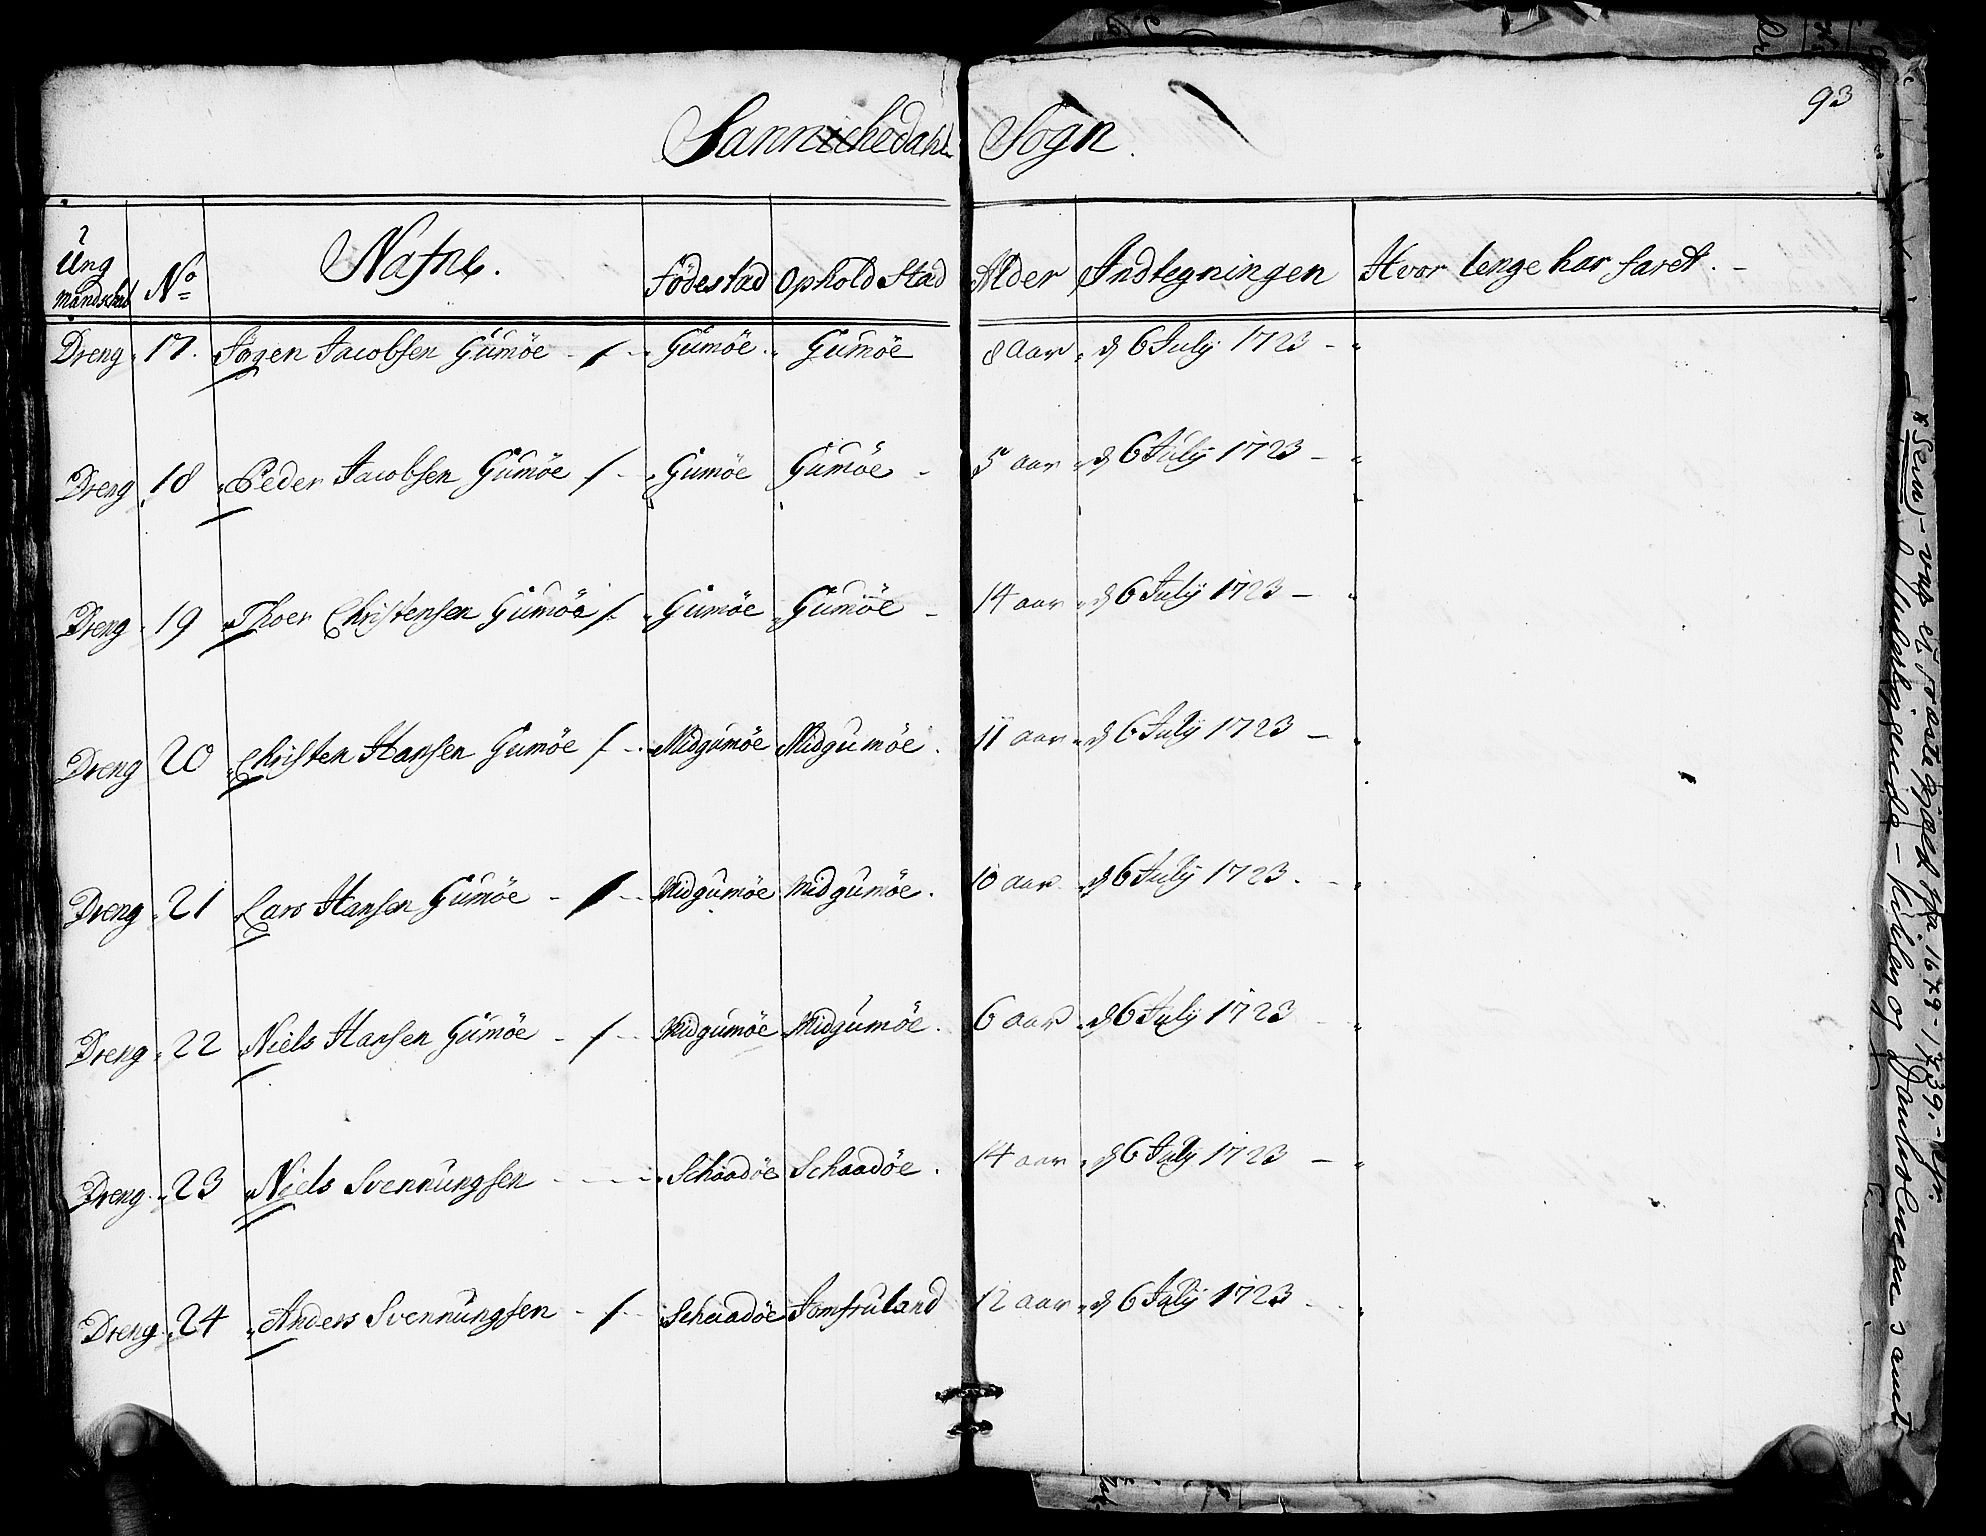 93
Sannichedahl Sogn.
Ung
Mandskab No Nafne. Födestad Ophold Stad Alder Indtegningen Hvor lenge har faret.
Dreng 17. Jögen Jacobsen Gümöe Gümöe Gümöe 8 aar d 6 July 1723
Dreng 18 Peder Jacobsen Gümöe Gümöe Gümöe 5 aar d 6 July 1723
Dreng 19 Thoer Christensen Gümöe Gümöe Gümöe 14 aar d 6 July 1723
Dreng 20 Christen Hansen Gümöe Midgümöe Midgümöe 11 aar d 6 July 1723
Dreng 21 Lars Hansen Gümöe Midgümöe Midgümöe 10 aar d 6 July 1723
Dreng 22 Niels Hansen Gümöe Midgümöe Midgümöe 6 aar d 6 July 1723
Dreng 23 Niels Svennüngsen Schaadöe Schaadöe 14 aar d 6 July 1723
Dreng 24 Anders Svennüngsen Schaadöe Jomfruland 12 aar d 6 July 1723
* Sem - var ej præstegjæld fra 1679-1739.